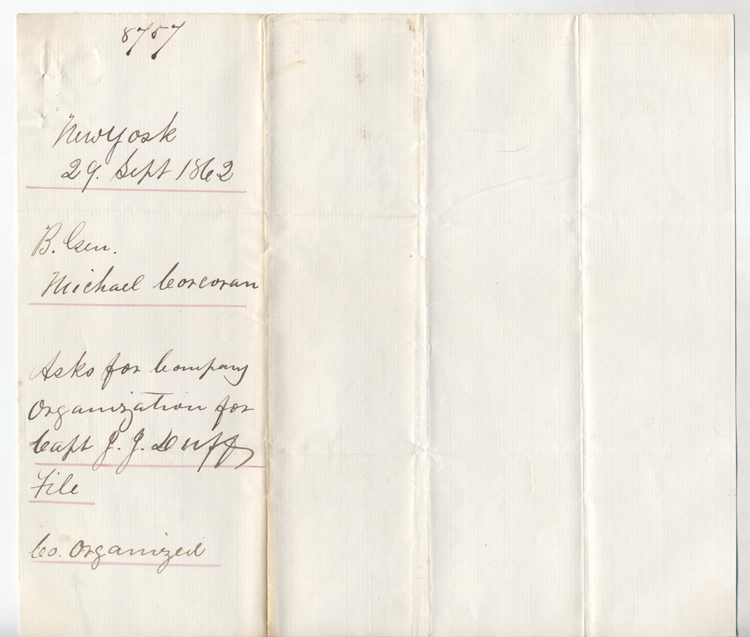 8757
New York
29. Sept 1862
B. Gen.
Michael Corcoran
Asks for Company
Organization for
Capt J. J. Duffy
File
Co. Organized